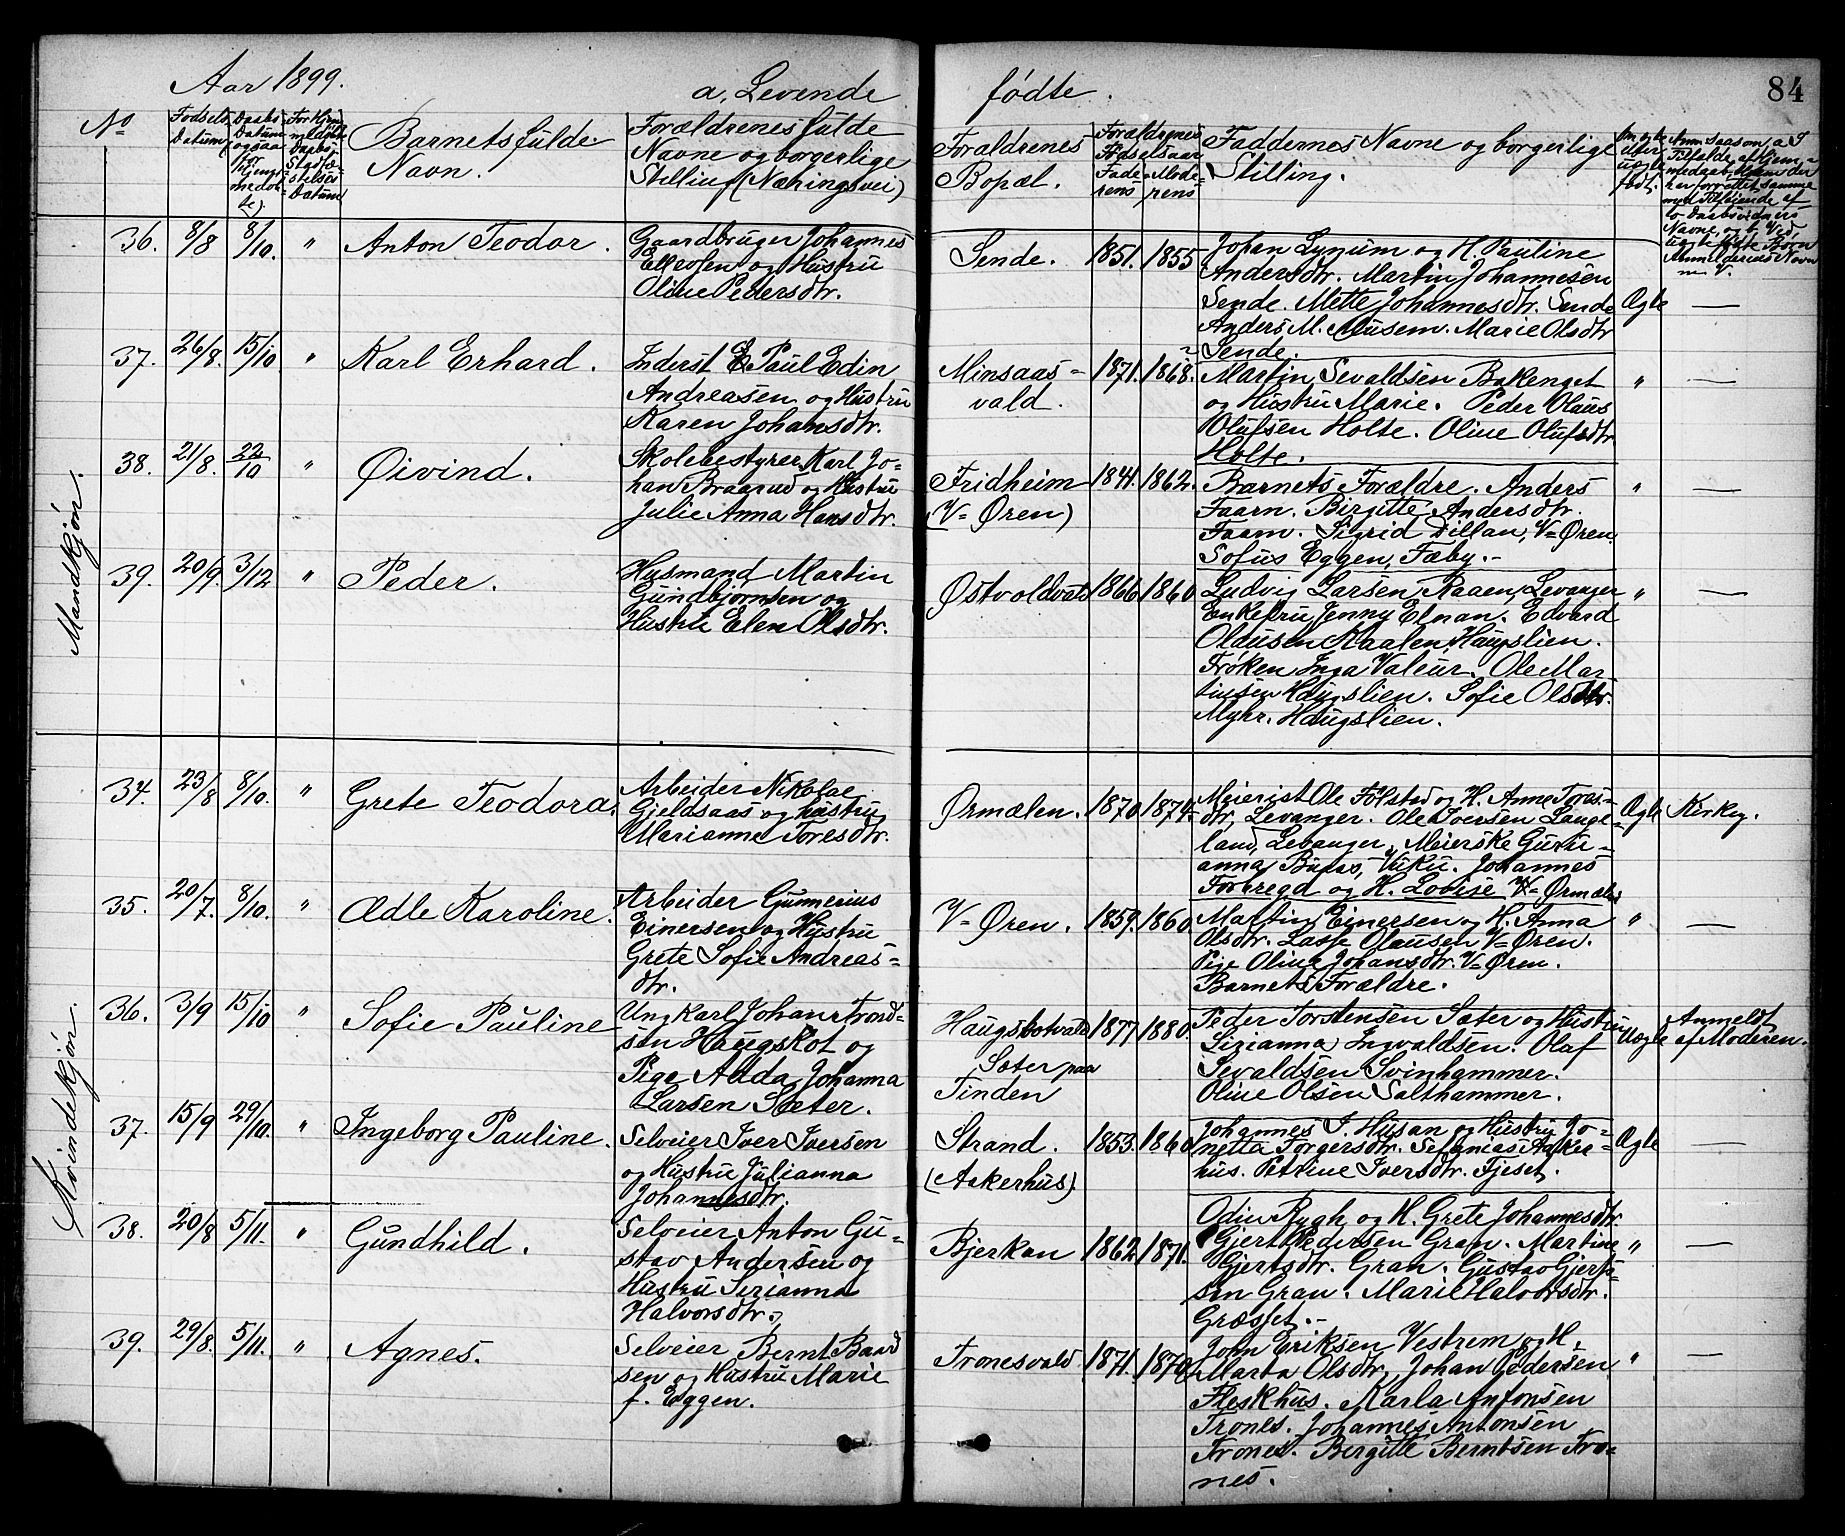 Aar 1899. a, Levende fødte. 84
No
Fødsels Datum
Daabs Datum (ogsaa for Hjemmedøbte).
For Hjemmedøbte Daabs Stadfæstelses Datum
Barnets fulde Navn.
Forældrenes fulde Navne og borgerlige Stilling (Næringsvei)
Forældrenes Bopæl.
Forældrenes Fødselsaar
Faderens Moderens
Faddernes Navne og borgerlige Stilling.
Om ægte eller uægte født.
Mandkjøn.
36. 8/8 8/10. " Anton Teodor.
Gaardbruger Johannes
Ellevsen og Hustru
Oline Pedersdtr.
Sende. 1851. 1855
Johan Lynum og H. Pauline
Andersdtr. Martin Johannesen
Sende. Mette Johannesdtr. Sende
Anders M. Musem. Marie Olsdtr
Sende.
Ægte —
37. 26/8. 15/10 " Karl Erhard.
Inderst E Paul Edin
Andreasen og Hustru
Karen Johansdtr.
Minsaas-
vald. 1871. 1868.
Martin Sevaldsen Bakenget
og Hustru Marie. Peder Olaus
Olufsen Holte. Oline Olufsdtr
Holte.
" —
38. 21/8. 22/10 " Øivind.
Skolebestyrer Karl Jo-
han Braarud og Hustru
Julie Anna Hansdtr.
Fridheim
(V= Øren) 1841. 1862.
Barnets Forældre. Anders
Faarn. Birgitte Andersdtr.
Faarn. Sigrid Dillan, V=Øren.
Sofus Eggen, Fæby.-
" —
39. 20/9. 3/12 " Peder.
Husmand Martin
Gundbjørnsen og
Hustru Elen Olsdtr.
Østvoldvald 1866 1860
Ludvig Larsen Raaen, Levanger
Enkefru Jenny Elnan. Edvard
Olausen Kaalen, Haugslien.
Frøken Inga Valeur. Ole Mar-
tinsen Haugslien. Sofie Olsdtr.
Myhr. Haugslien.
" —
Kvindekjøn.
34. 23/8 8/10. " Grete Teodora.
Arbeider Nikolae
Gjeldsaas og hustru
Marianna Toresdtr.
Ørmælen. 1870 1874
Meierist Ole Følstad og H. Anne Tores-
dtr, Levanger. Ole Iversen Lange-
land, Levanger, Meierske Guru-
anna Buaas, Viku. Johannes
Forbregd og H. Lovise V= Ørmælen
Ægte Kirkeg.
35. 20/7. 8/10. " Ædle Karoline.
Arbeider Gunnerius
Einersen og Hustru
Grete Sofie Andreas-
dtr.
V= Øren. 1859. 1860
Martin Einersen og H. Anna
Olsdtr. Lasse Olausen V=Øren.
Pige Oline Johansdtr. V=Øren.
Barnets Forældre.
" —
36. 3/9 15/10 " Sofie Pauline
Ungkarl Johan Trond-
sen Haugskot og
Pige Adda Johanna
Larsen Sæter.
Haugskotvald
Sæter paa
Tinden
1877 1880.
Peder Torstensen Sæter og Hustru
Sirianna Ingvaldsen. Olaf
Sevaldsen Svinhammer.
Oline Olsen Salthammer.
Uægte Anmeldt
af Moderen.
37. 15/9 29/10. " Ingeborg Pauline.
Selveier Iver Iversen
og Hustru Julianna
Johannesdtr.
Strand.
(Aakerhus). 1853. 1860
Johannes I. Husan og Hustru Jo-
netta Torgersdtr. Sefanias Aaker-
hus. Petrine Iversdtr. Fjeset.
Ægte —
38. 20/8 5/11. " Gundhild.
Selveier Anton Gu-
stav Andersen og
Hustru Sirianna
Halvorsdtr.
Bjerkan 1862 1871.
Odin Rygh og H. Grete Johannesdtr.
Gjert Pedersen Gran. Martine
Gjertsdtr. Gran. Gustav Gjert-
sen Gran. Marie Halvorsdtr.
Græsset.-
" —
39. 29/8. 5/11. " Agnes.
Selveier Bernt Baard
sen og Hustru Marie
f. Eggen.
Tronesvald 1871. 1870
John Eriksen Vestrem og H.
Marta Olsdtr, Johan Pedersen
Fleskhus. Karla Antonsen
Trones. Johannes Antonsen
Trones. Birgitte Berntsen Tro-
nes.
" —